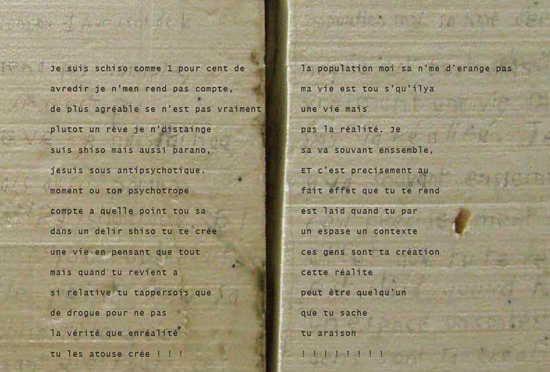 Je suis schiso comme 1 pour cent de la population moi sa n'me d'erange pas
avredir je n'men rend pas compte, ma vie est tou s'qu'ilya
de plus agréable se n'est pas vraiment une vie mais
plutot un rêve je n'distainge pas la réalité. Je
suis shiso mais aussi parano, sa va souvant enssemble,
jesuis sous antipsychotique. ET c'est precisement au
moment ou ton psychotrope fait effet que tu te rend
compte a quelle point tou sa est laid quand tu par
dans un delir shiso tu te crée un espase un contexte
une vie en pensant que tout ces gens sont ta création
mais quand tu revient a cette réalite
si relative tu tappersois que peut être quelqu'un
de drogue pour ne pas que tu sache
la vérité que enréalité tu araison
tu les atouse crée ! ! ! ! ! ! ! ! ! ! !